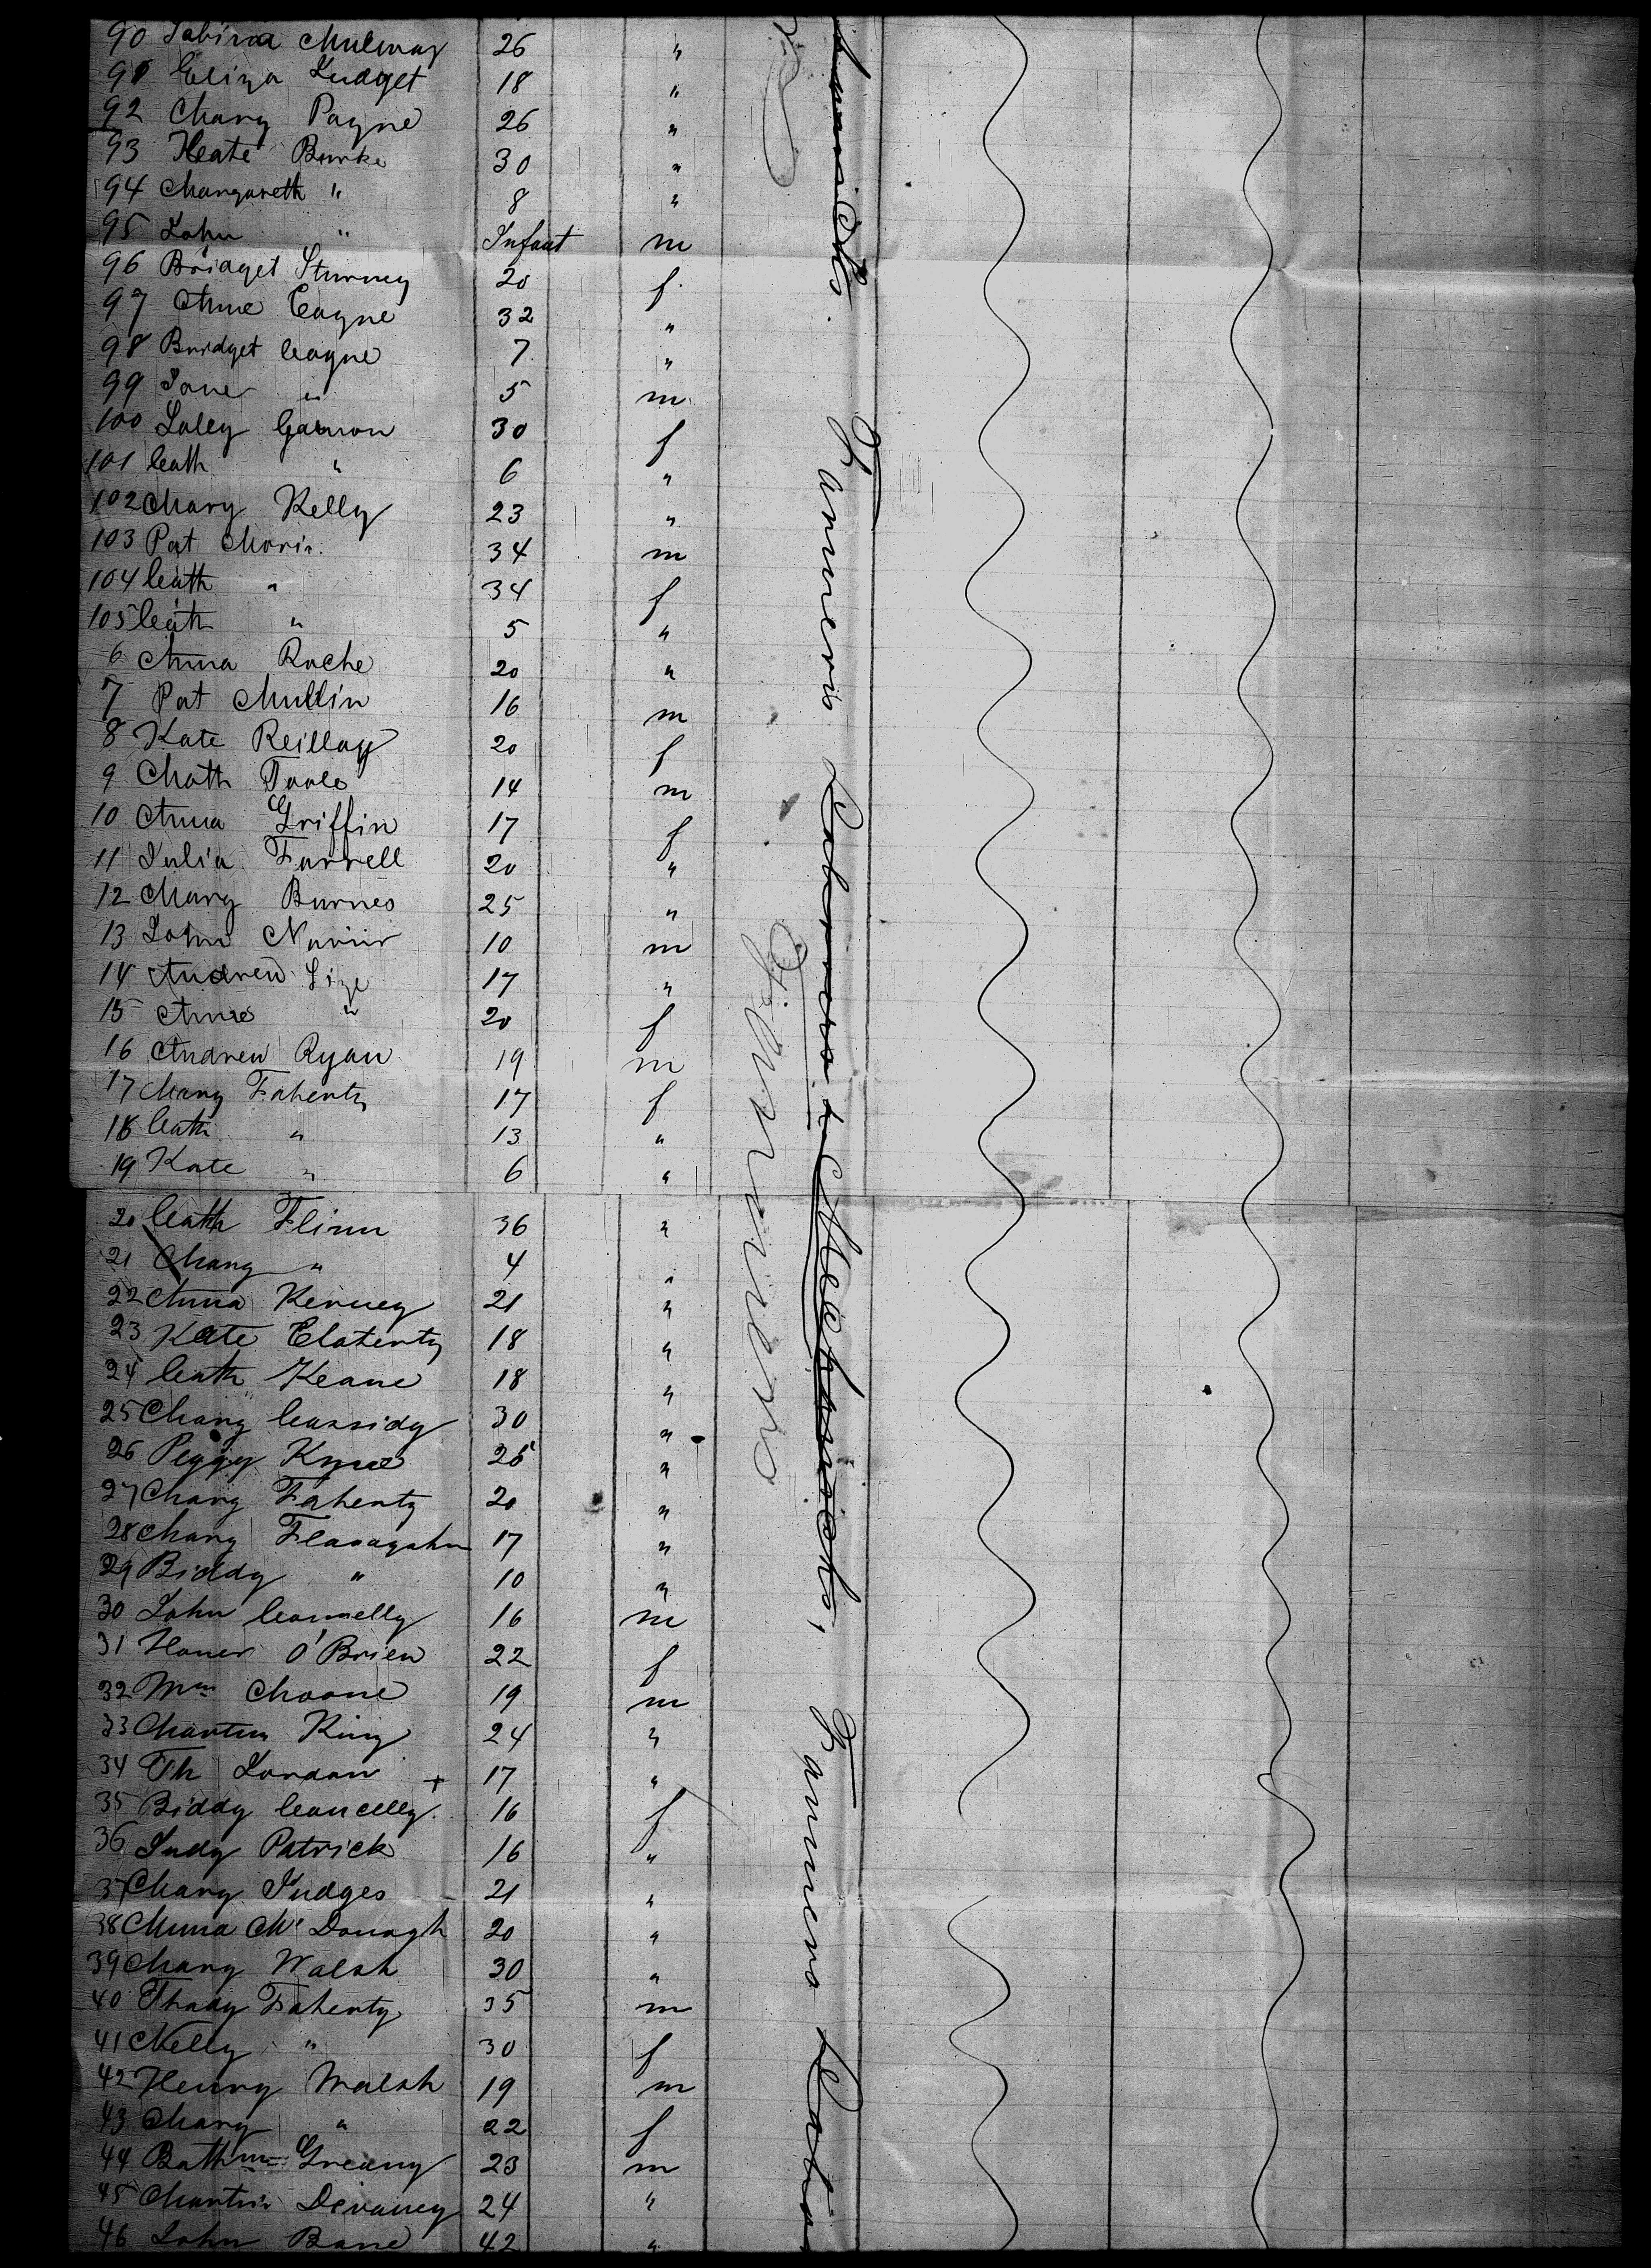 90 Sabina Mulway 26 "
91 Eliza Judget 18 "
92 Mary Payne 26 "
93 Kate Burke 30 "
94 Margareth " 8 "
95 John " Infant m
96 Bridget Sturney 20 f
97 Anne Coyne 32 "
98 Bridget Coyne 7 "
99 Jane " 5 m
100 Saley Gannon 30 f
101 Cath " 6 "
102 Mary Kelly 23 "
103 Pat Moris 34 m
104 Cath " 34 f
105 Cath " 5 "
6 Anna Roche 20 "
7 Pat Mullin 16 m
8 Kate Reillay 20 f
9 Math Toole 14 m
10 Anna Griffin 17 f
11 Julia Farrell 20 "
12 Mary Burnes 25 "
13 John 10 m
14 Andrew Lize 17 "
15 Anne " 20 f
16 Andrew Ryan 19 m
17 Mary Faherty 17 f
18 Cath " 13 "
19 Kate " 6 "
20 Cath Flinn 36 "
21 Mary " 4 "
22 Anna Kenney 21 "
23 Kate Claherty 18 "
24 Cath Keane 18 "
25 Mary Cassidy 30 "
26 Peggy Kyne 26 "
27 Mary Faherty 20 "
28 Mary Flanagahn 17 "
29 Biddy " 10 "
30 John Connelly 16 m
31 Honer O'Brien 22 f
32 Wm Moone 19 m
33 Martin King 24 "
34 Th Jordan + 17 "
35 Biddy Connelly 16 f
36 Judy Patrick 16 "
37 Mary Judges 21 "
38 Anna Mc Donagh 20 "
39 Mary Walsh 30 "
40 Thady Faherty 35 m
41 Nelly " 30 f
42 Henry Walsh 19 m
43 Mary " 22 f
44 Bathm Greany 23 m
45 Martin Devaney 24 "
46 John Bane 42 "
Farmers Labourers & Mechanicks, Farmers Labo